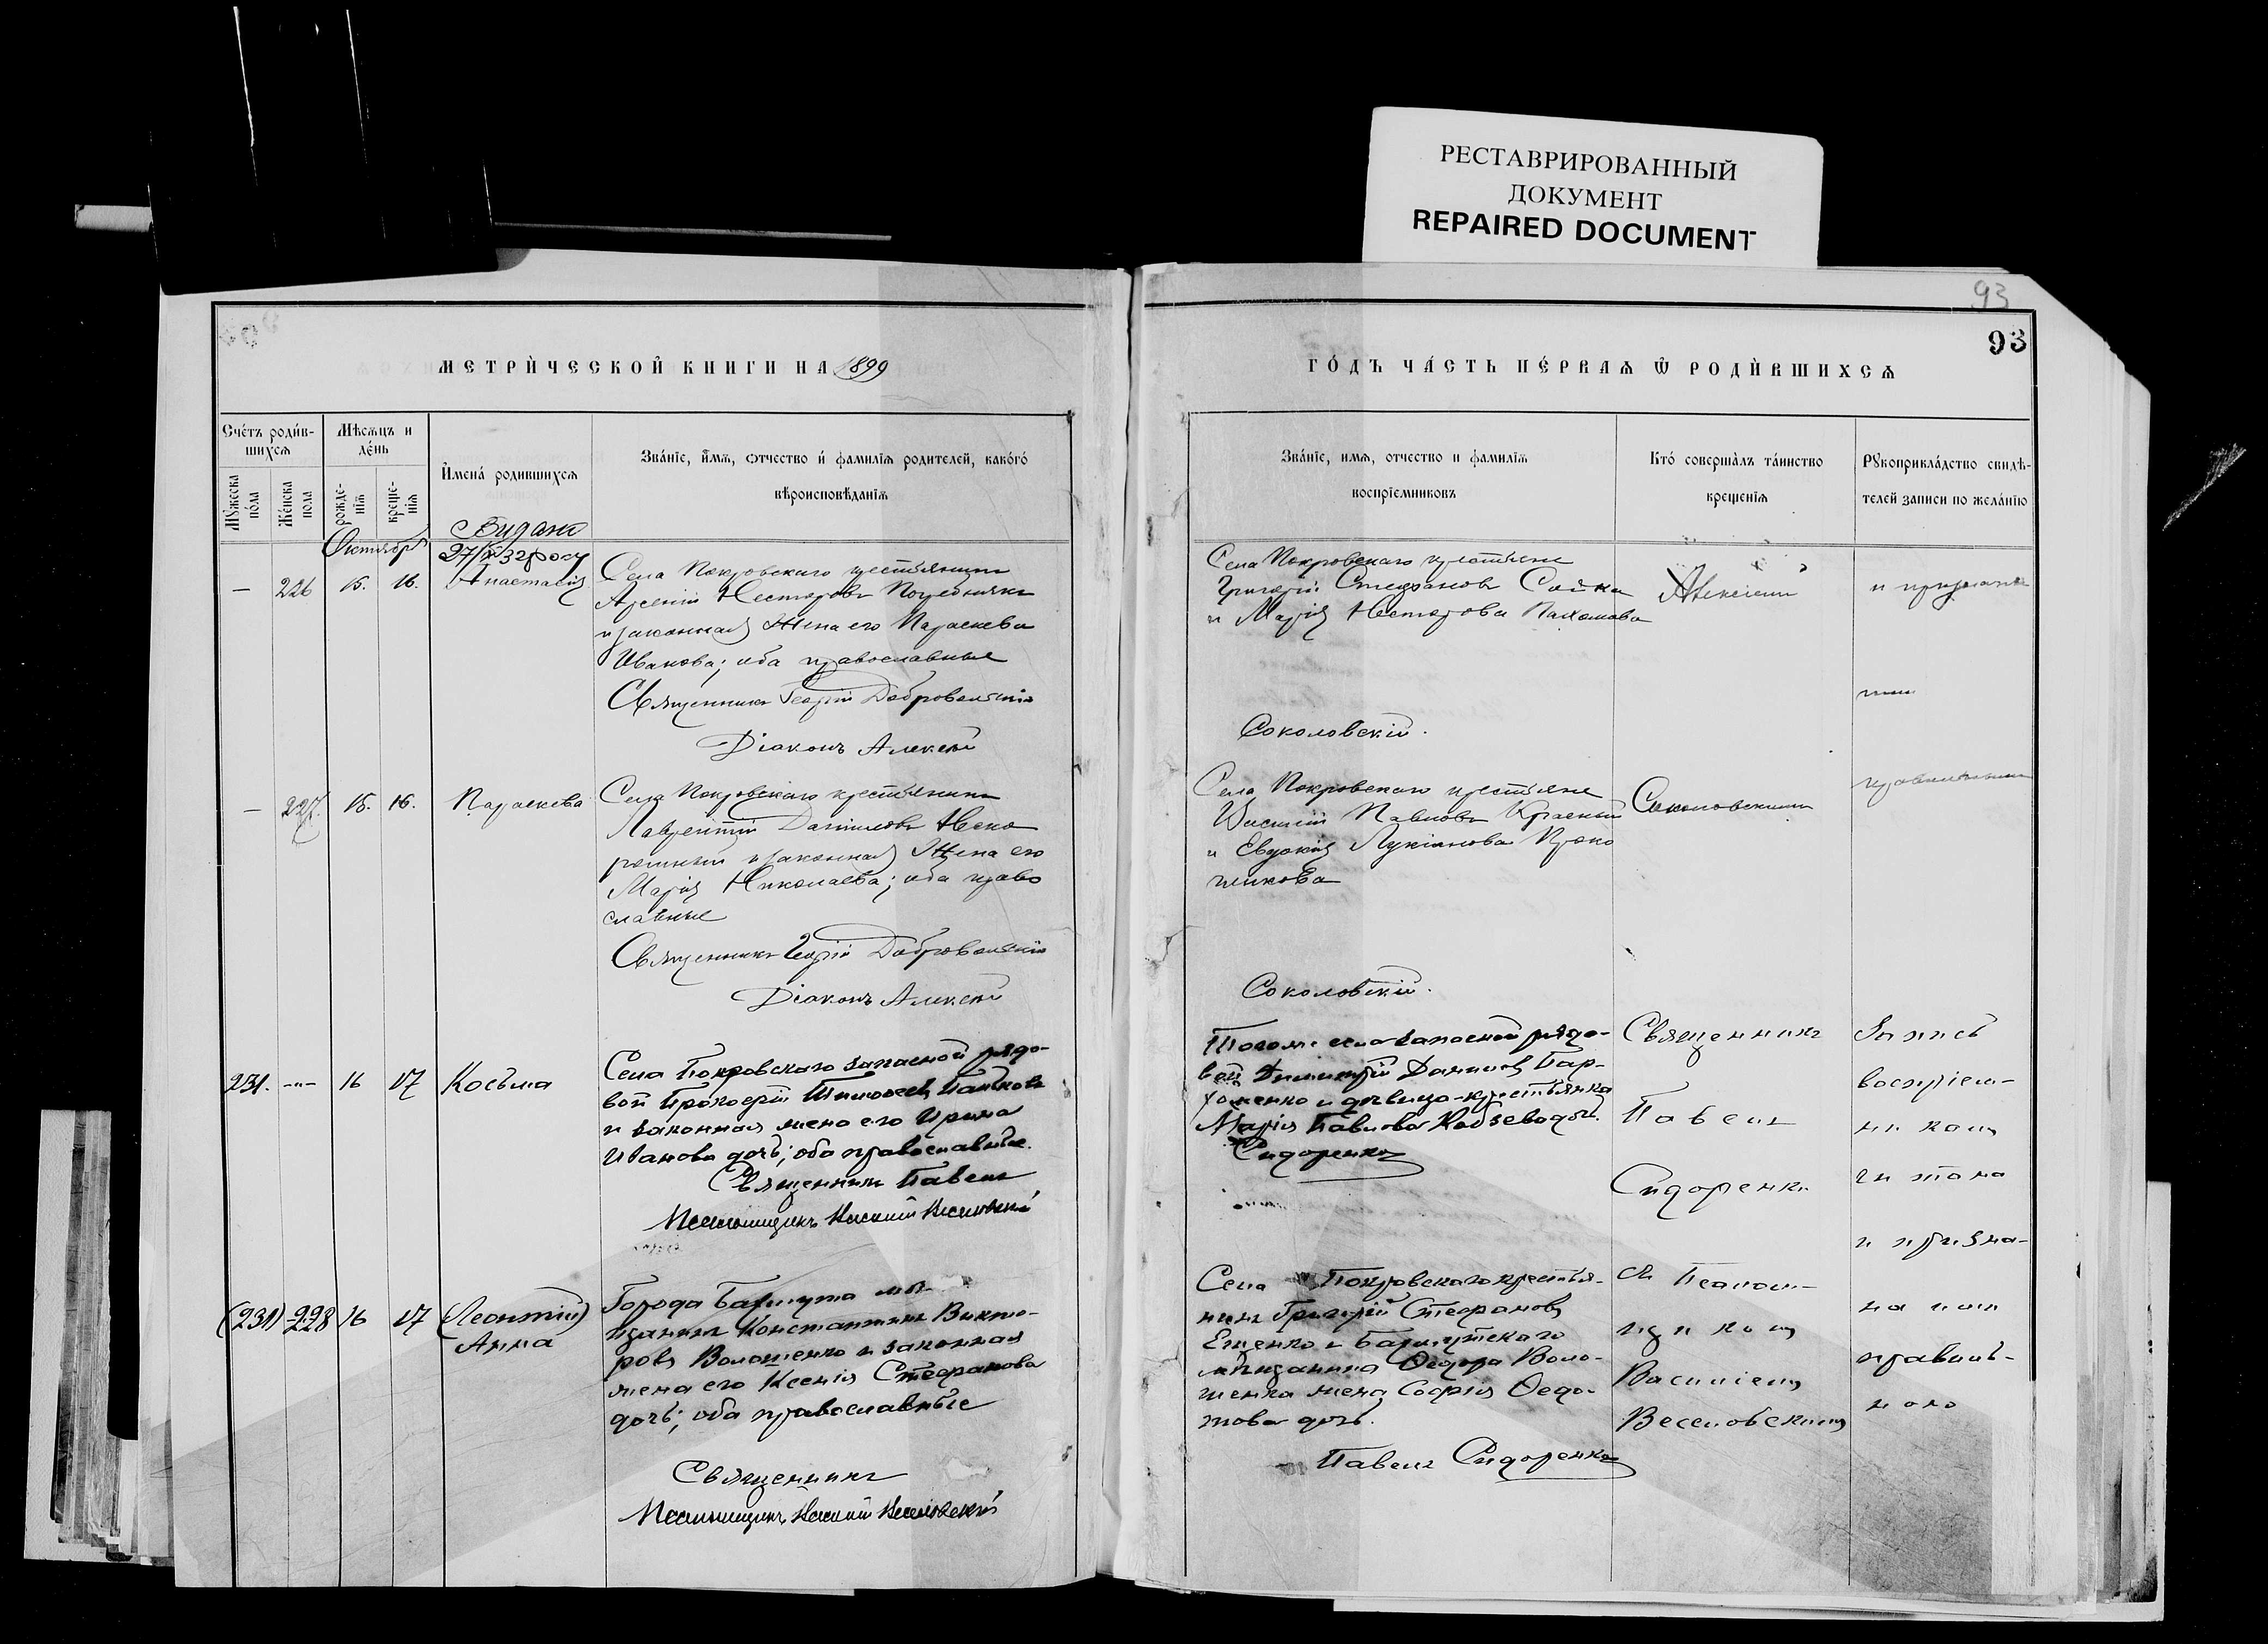 РЕСТАВРИРОВАННЫЙ
ДОКУМЕНТ
REPAIRED DOCUMENT
93
93
МЕТРИ́ЧЕСКОЙ КНИГИ НА 1899
ГО́ДЪ ЧА́СТЬ ПЕ́РВАѦ Ѿ РОДИ́ВШИХСѦ
Сче́тъ роди́в-
шихсѧ
Мꙋ́жеска по́ла
Же́нска пола
Мѣ́сѧцъ и
де́нь
рожде-
нїѧ
креще-
нїѧ
И҆мена́ родившихсѧ
Зва́нїе, и҆́мѧ, ѻтчество и҆ фамилїѧ родителей, како́гѡ
вѣроисповѣ́данїѧ
Зва́нїе, имѧ, отчество и фамилїѧ
воспрїемниковъ
Кто́ соверша́лъ та́инство
креще́нїѧ
Рꙋкоприкла́дство свидѣ́-
телей записи по жела́нїю
Октябрь
Видано
27/ 32 року
— 226 15. 16. Анастасія
Села Покровскаго крестьянинъ
Арсеній Несторовъ
и законная жена его Параскева
Иванова; оба православные
Священникъ Георгій Добровольскій
Діаконъ Алексій
Села Покровскаго крестьяне
Григорій Стефановъ Сойка
и Марія Несторова Пахомова
Соколовскій.
Алексіемъ
и
— 227. 15. 16. Параскева
Села Покровскаго крестьянинъ
Лаврентій Даніиловъ Неско
ромный и законная жена его
Марія Николаева; оба право
славные
Священникъ Георгій Добровольскій
Діаконъ Алексій
Села Покровскаго крестьяне
Павловъ Красный
и Евдокія Лукіанова Проко
пчикова
Соколовскій.
Соколовскимъ
231. -"- 16 17 Косьма
Села Покровскаго запасной рядо-
вой Прокофій Тимофеевъ
и законная жена его Ирина
Иванова дочь; оба православные.
Священникъ Павелъ
Псаломщикъ Василій Веселовскій
Тогоже села запасной рядо-
вой Димитрій Даніиловъ Пар-
хоменко и девица-крестьянка
Марія Павлова
Сидоренко
Священникъ
Павелъ
Сидоренко
Запись
воспріем-
никамъ
читана
и призна-
на ими
правиль-
ною
(231) 228 16 17 (Леонтій)
Анна
Города Бахмута мѣ-
щанинъ Константинъ Викто-
ровъ Волошенко и законная
жена его Ксенія Стефанова
дочь; оба православные
Священникъ
Псаломщикъ Василій Веселовскій
Села Покровскаго крестья-
нинъ Григорій Стефановъ
Ещенко и Бахмутскаго
мѣщанина Ѳедора Воло-
шенка жена Софія Ѳедо-
това дочь.
Павелъ Сидоренко
съ Псалом-
щикомъ
Василіемъ
Веселовскимъ